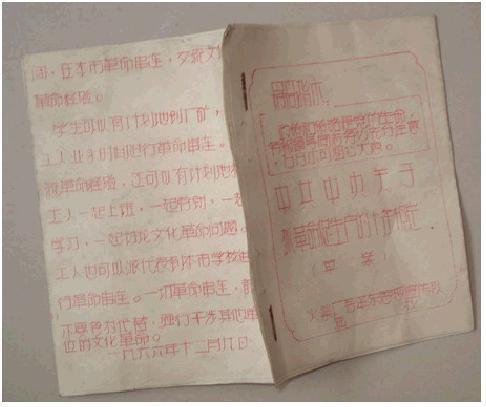 间，在本市革命串连，交流文
革命经验。
学生可以有计划地到厂矿，
工人业余时间进行革命串连。
流革命经验，还可以有计划地
工人一起上班，一起劳动，一起
学习，一起讨论文化革命问题。
工人也可以派代表到本市学校
行革命串连。一切革命串连，都
位的文化革命。
一九六六年十二月九日
最高指示
政策和策略是党的生命，
各级领导同志务必充分注意，
万万不可粗心大意。
中共中央关于
抓革命促生产的十条规定
（草案）